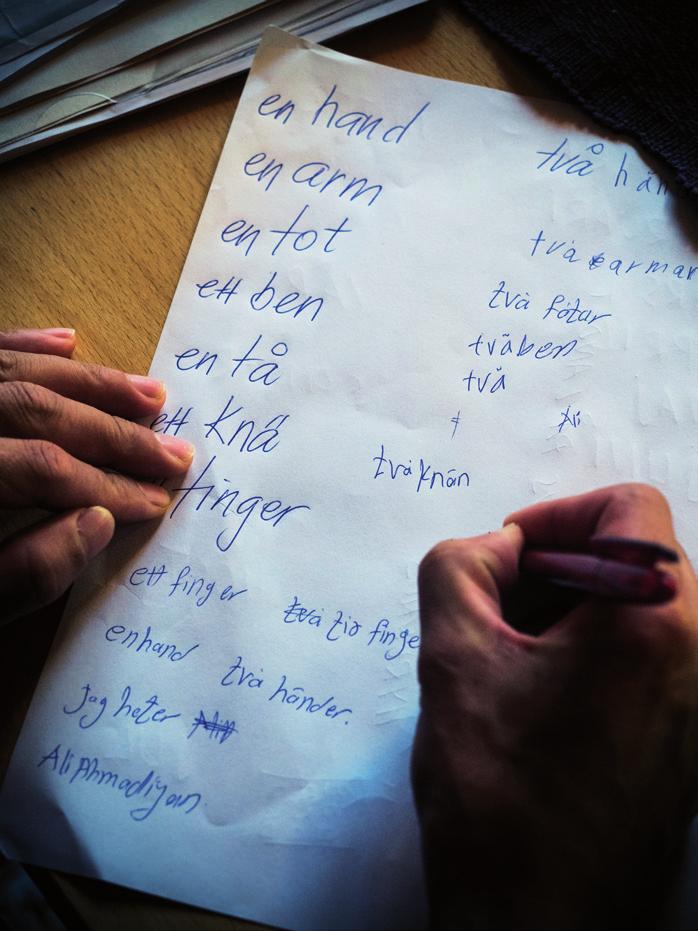 en hand två hän
en arm två armar
en tot två fötar
ett ben två ben
en tå två
ett knä två knän
finger
ett finger tio finge
en hand två händer.
Jag heter
Ali Ahmadiyan.